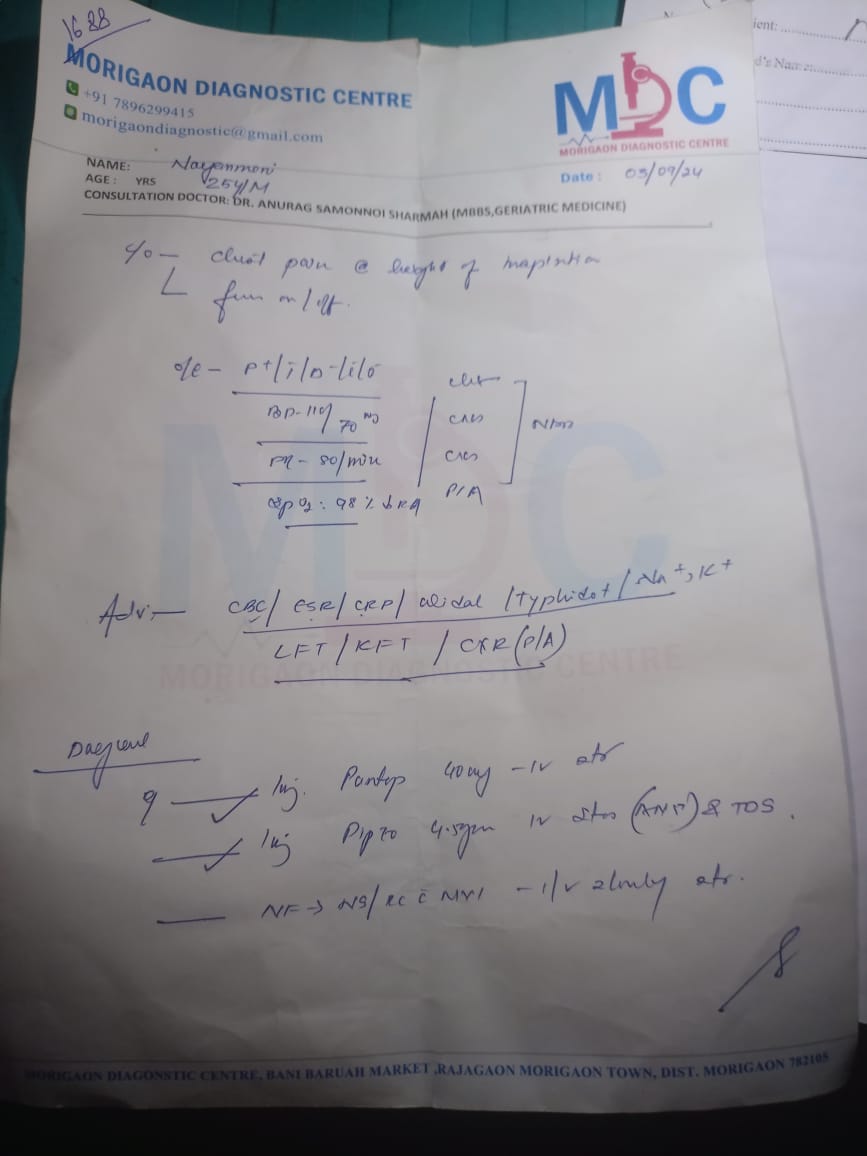 1688
MORIGAON DIAGNOSTIC CENTRE
+91 7896299415
morigaondiagnostic@gmail.com
MDC
MORIGAON DIAGNOSTIC CENTRE
NAME: Nayanmoni
AGE: YRS 25Y/M
Date: 03/09/24
CONSULTATION DOCTOR: DR. ANURAG SAMONNOI SHARMAH (MBBS,GERIATRIC MEDICINE)
c/o — chest pain @ height of inspiration
fever on/off.
o/e —
BP- 110/70
PR - 80/min
SpO2: 98%
chest
CNS
P/A
Adv:— CBC/ ESR/ CRP/ widal /Typhidot/ Na+, K+
LFT / KFT / CXR (P/A)
Inj. Pantop 40mg - IV
Inj Pipzo 4.5gm IV (ANST) & TDS.
NS/ MVI - I/V slowly
MDC
MORIGAON DIAGNOSTIC CENTRE
MORIGAON DIAGONSTIC CENTRE, BANI BARUAH MARKET ,RAJAGAON MORIGAON TOWN, DIST. MORIGAON 782105
ient:
d's Name: